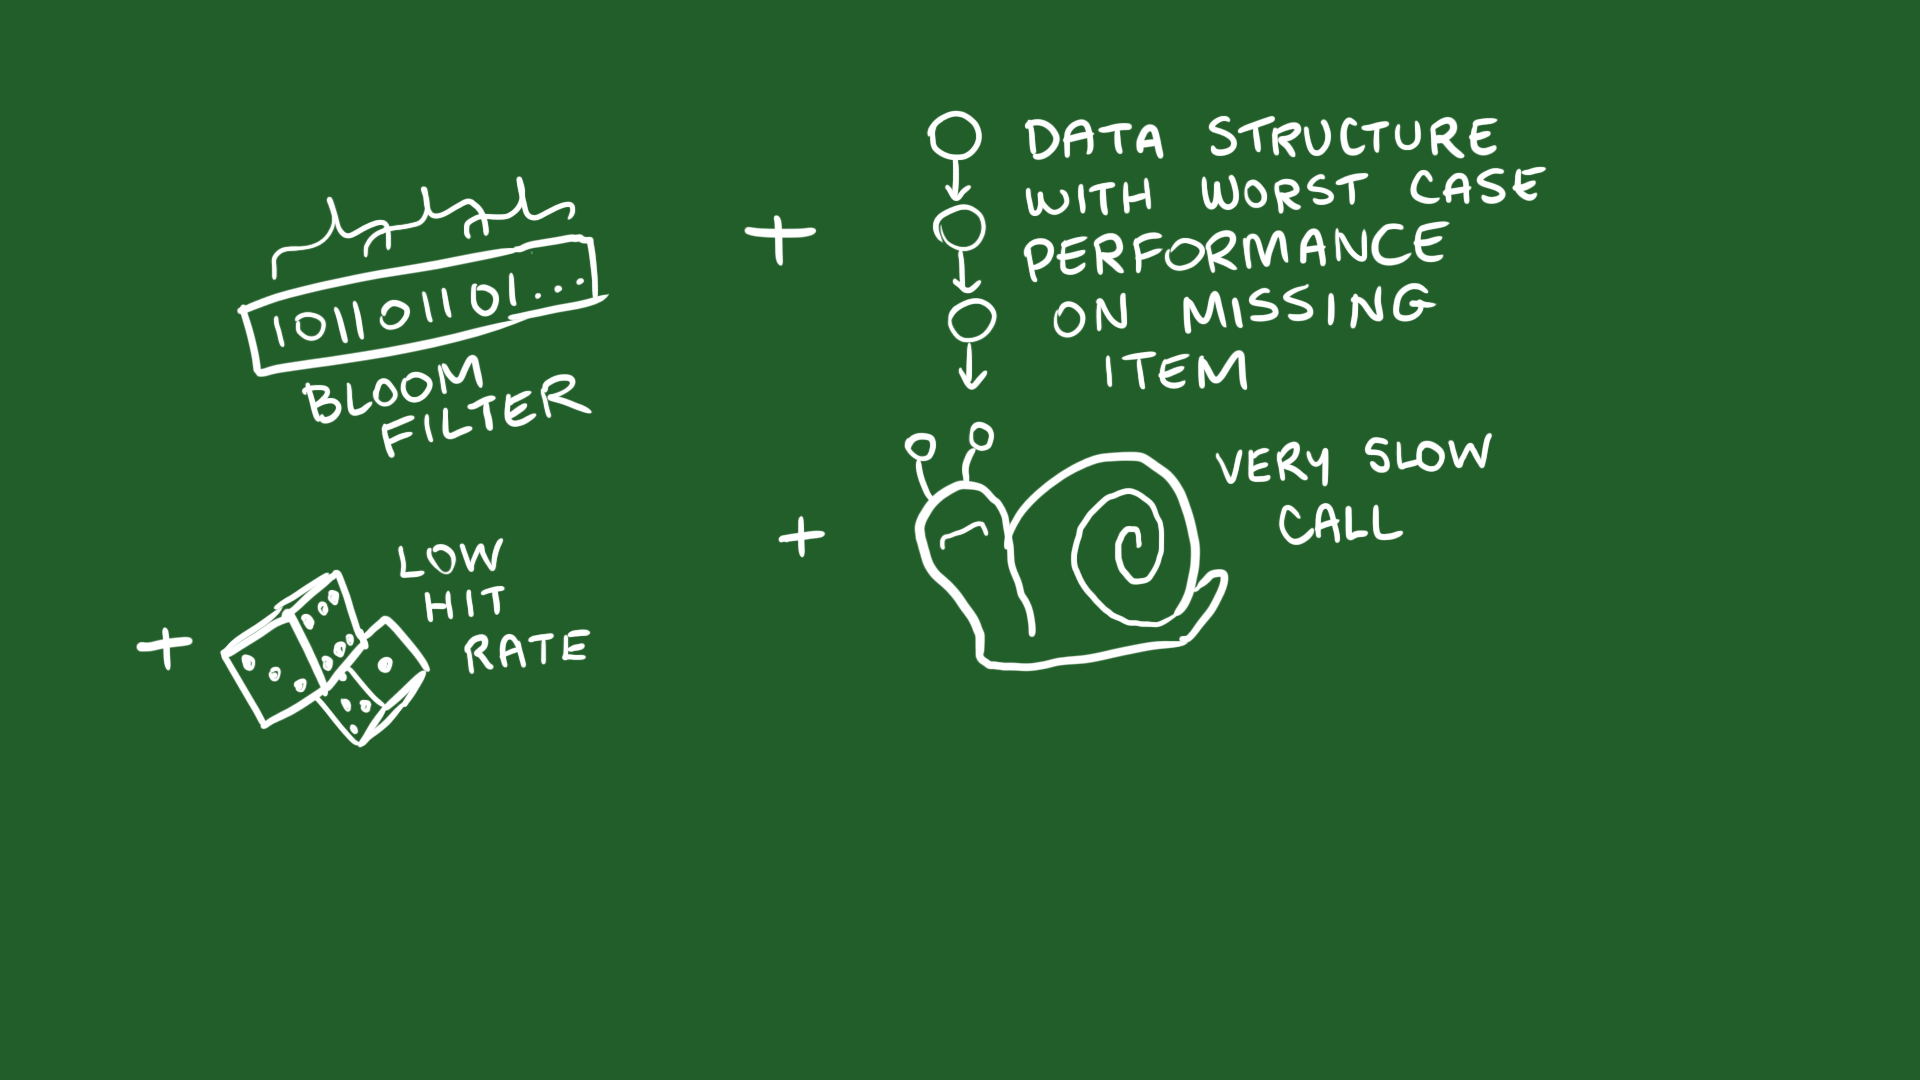 1011011101...
BLOOM
FILTER
+
DATA STRUCTURE
WITH WORST CASE
PERFORMANCE
ON MISSING
ITEM
+
LOW
HIT
RATE
+
VERY SLOW
CALL